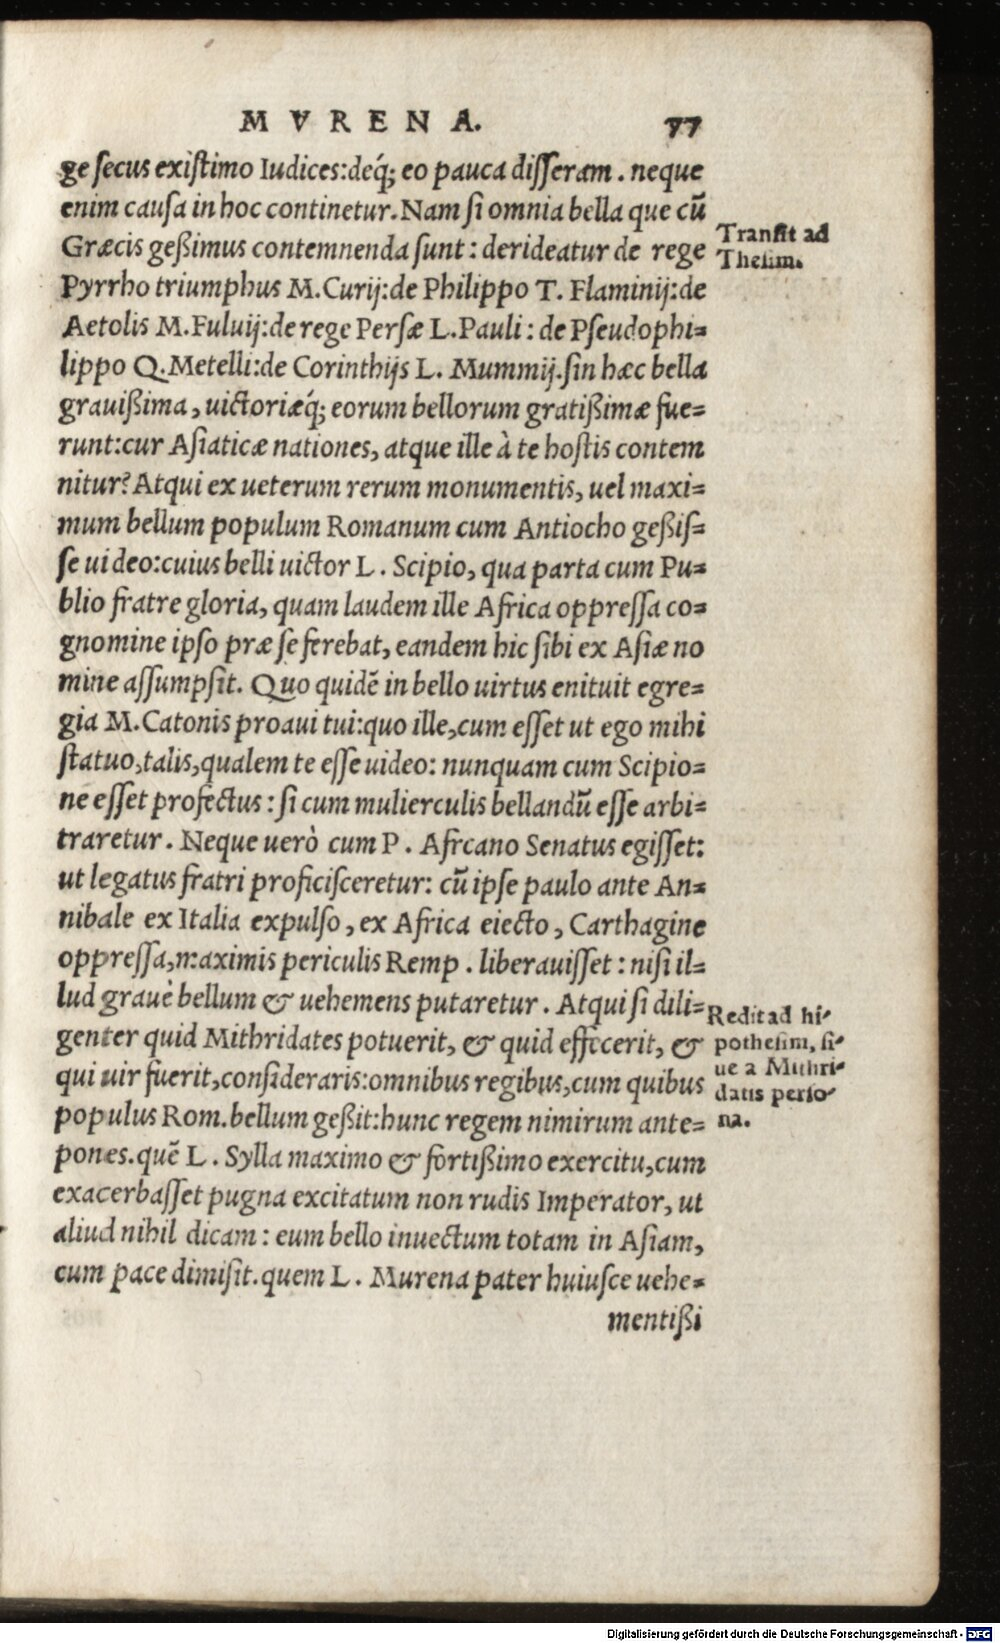 MVRENA. 77
ge ſecus exiſtimo Iudices:deq́; eo pauca diſſeram. neque
enim cauſa in hoc continetur. Nam ſi omnia bella que cũ
Græcis geßimus contemnenda ſunt: derideatur de rege
Pyrrho triumphus M. Curij:de Philippo T. Flaminij:de
Aetolis M. Fuluij:de rege Perſæ L. Pauli: de Pſeudophi=
lippo Q. Metelli:de Corinthijs L. Mummij. ſin hæc bella
grauißima, uictoriæq́; eorum bellorum gratißimæ fue=
runt:cur Aſiaticæ nationes, atque ille à te hoſtis contem
nitur? Atqui ex ueterum rerum monumentis, uel maxi=
mum bellum populum Romanum cum Antiocho geßiſ=
ſe uideo:cuius belli uictor L. Scipio, qua parta cum Pu=
blio fratre gloria, quam laudem ille Africa oppreſſa co=
gnomine ipſo præ ſe ferebat, eandem hic ſibi ex Aſiæ no
mine aſſumpſit. Quo quidẽ in bello uirtus enituit egre=
gia M. Catonis proaui tui:quo ille, cum eſſet ut ego mihi
ſtatuo, talis, qualem te eſſe uideo: nunquam cum Scipio=
ne eſſet profectus: ſi cum mulierculis bellandũ eſſe arbi=
traretur. Neque uerò cum P. Afrcano Senatus egiſſet:
ut legatus fratri proficiſceretur: cũ ipſe paulo ante An=
nibale ex Italia expulſo, ex Africa eiecto, Carthagine
oppreſſa, maximis periculis Remp. liberauiſſet: niſi il=
lud grauè bellum & uehemens putaretur. Atqui ſi dili=
genter quid Mithridates potuerit, & quid effecerit, &
qui uir fuerit, conſideraris:omnibus regibus, cum quibus
populus Rom. bellum geßit:hunc regem nimirum ante=
pones. quẽ L. Sylla maximo & fortißimo exercitu, cum
exacerbaſſet pugna excitatum non rudis Imperator, ut
aliud nihil dicam: eum bello inuectum totam in Aſiam,
cum pace dimiſit. quem L. Murena pater huiuſce uehe=
mentißi
Tranſit ad
Theſim.
Redit ad hi-
potheſim, ſi-
ue a Mithri-
datis perſo-
na.
Digitalisierung gefördert durch die Deutsche Forschungsgemeinschaft - DFG